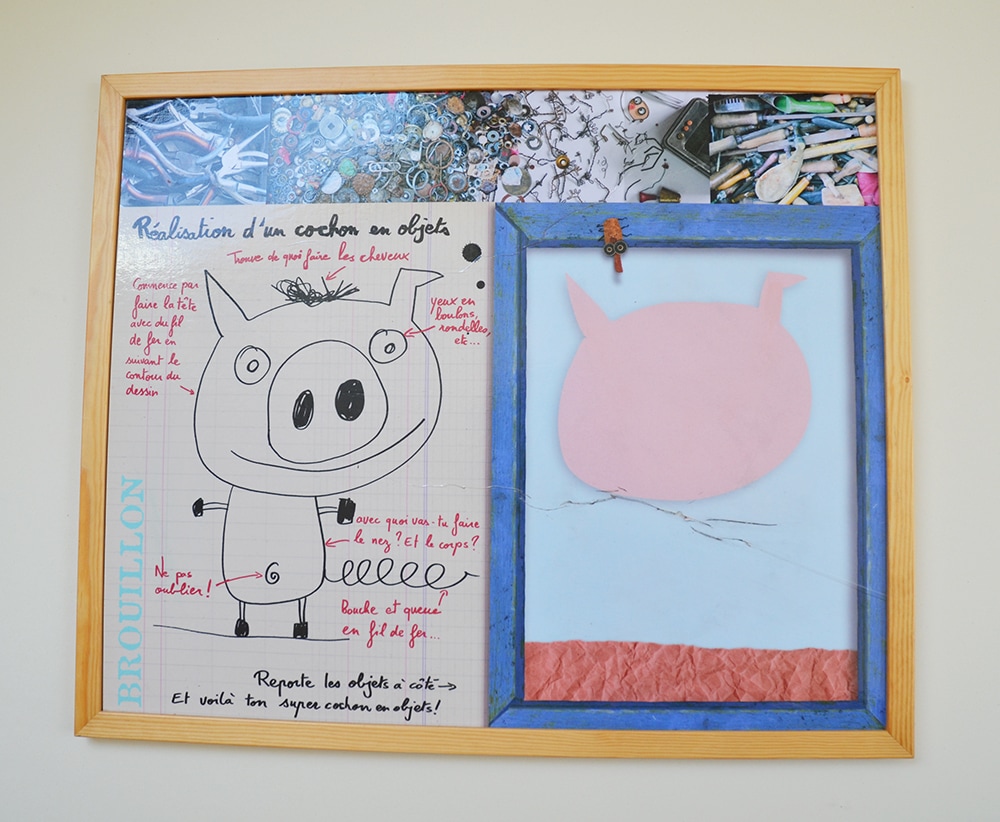 Réalisation d'un cochon en objets
Trouve de quoi faire les cheveux
Commence par
faire la tête
avec du fil
de fer en
suivant le
contour du
dessin
yeux en
boulons,
rondelles,
etc...
avec quoi vas-tu faire
le nez ? Et le corps ?
Ne pas
oublier !
Bouche et queue
en fil de fer...
BROUILLON
Reporte les objets à côté →
Et voilà ton super cochon en objets !